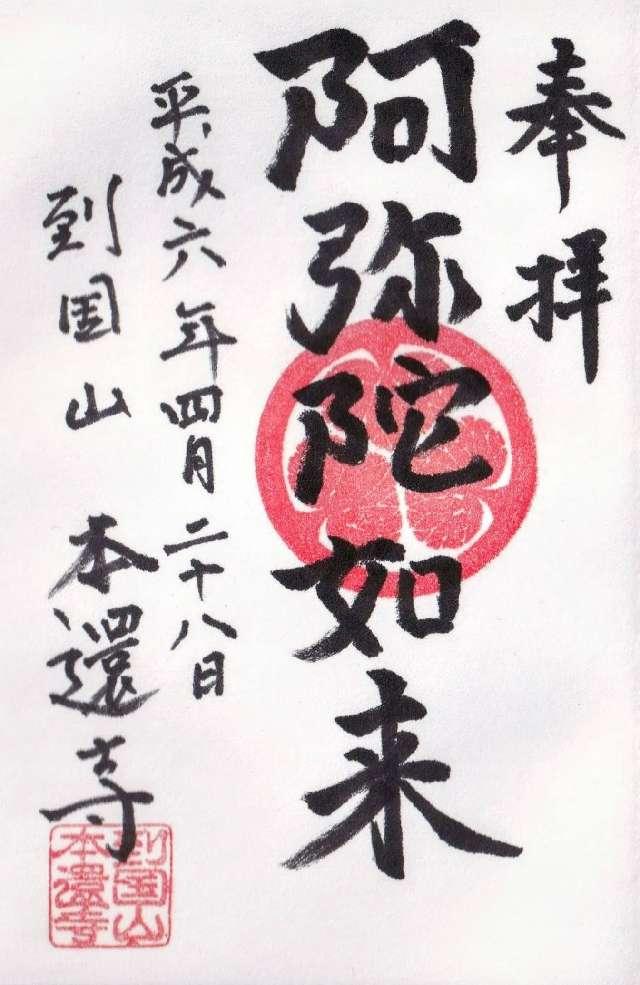 奉拝
阿弥陀如来
平成六年四月二十八日
到国山 本還寺
到国山
本還寺